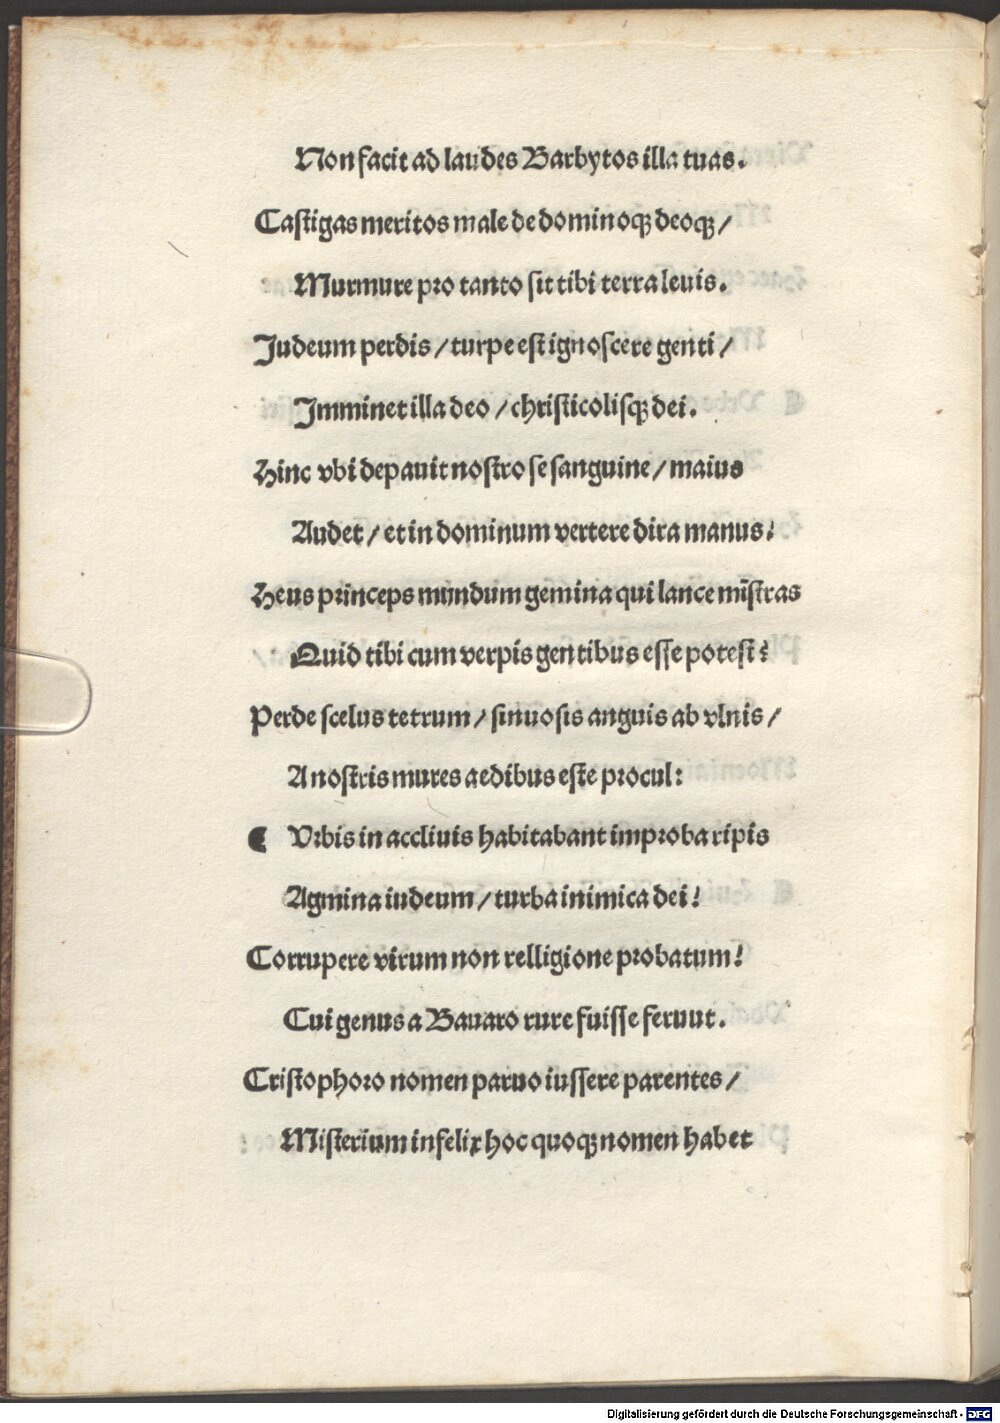 Non facit ad laudes Barbytos illa tuas.
Castigas meritos male de dominoqꝫ deoqꝫ /
Murmure pro tanto sit tibi terra leuis.
Judeum perdis / turpe est ignoscere genti /
Imminet illa deo / christicolisqꝫ dei.
Hinc vbi depauit nostro se sanguine / maius
Audet / et in dominum vertere dira manus?
Heus princeps mundum gemina qui lance mīstras
Quid tibi cum verpis gentibus esse potest?
Perde scelus tetrum / sinuosis anguis ab vlnis /
A nostris mures aedibus este procul:
¶ Vrbis in accliuis habitabant improba ripis
Agmina iudeum / turba inimica dei!
Corrupere virum non relligione probatum!
Cui genus a Bauaro rure fuisse feruut.
Cristophoro nomen paruo iussere parentes /
Misterium infelix hoc quoqꝫ nomen habet
Digitalisierung gefördert durch die Deutsche Forschungsgemeinschaft - DFG